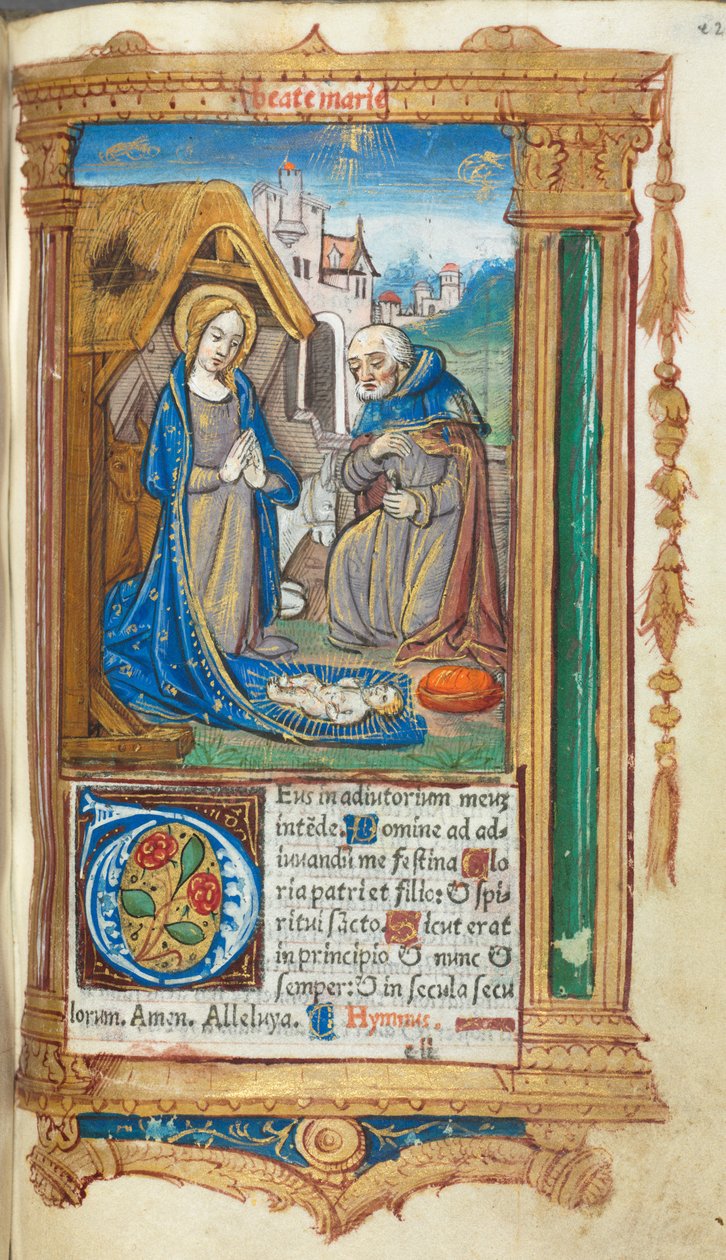 beate marie
Eus in adiutorium meuʒ
intẽde. Domine ad ad⸗
iuuandũ me festina Glo
ria patri et filio: & spi⸗
ritui sãcto. Sicut erat
in principio & nunc &
semper: & in secula secu
lorum. Amen. Alleluya. Hymnus.